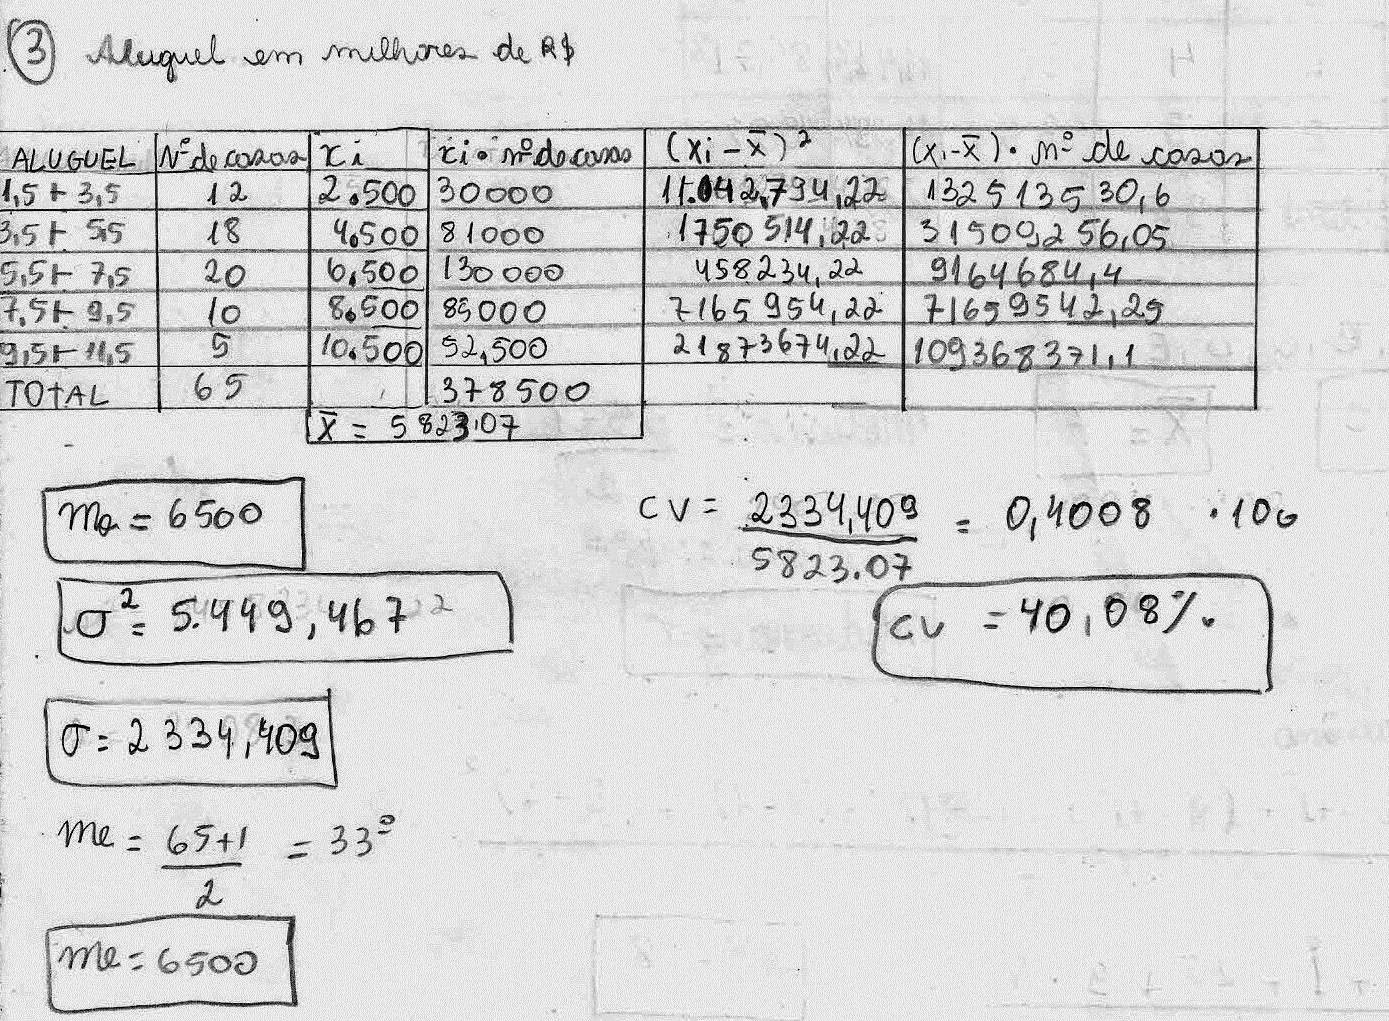 ③ Aluguel em milhares de R$
ALUGUEL Nº de casas xi xi • nº de casas (xi - x̄)² (xi - x̄) • nº de casas
1,5 ⊢ 3,5 12 2.500 30000 11.042,794,22 132513530,6
3,5 ⊢ 5,5 18 4.500 81000 1750514,22 31509256,05
5,5 ⊢ 7,5 20 6.500 130000 458234,22 9164684,4
7,5 ⊢ 9,5 10 8.500 85000 7165954,22 71659542,25
9,5 ⊢ 11,5 5 10.500 52,500 21873674,22 109368371,1
TOTAL 65 378500
x̄ = 5823.07
Mo = 6500
CV = 2334,409 / 5823.07 = 0,4008 • 100
σ² = 5.449,467
CV = 40,08%
σ = 2334,409
Me = 65+1 / 2 = 33º
Me = 6500